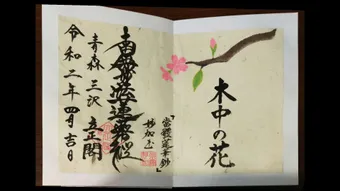 木中の花
南無妙法蓮華経
青森 三沢 立正閣
令和二年四月吉日